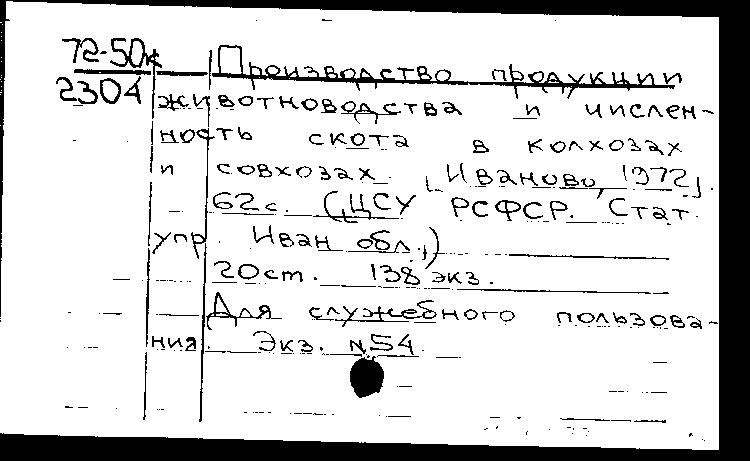 72-50к
2304
Производство продукции
животноводства и числен-
ность скота в колхозах
и совхозах. [Иваново, 1972].
62с. ([ЦСУ РСФСР. Стат.
упр. Иван обл.])
20см. 138 экз.
Для служебного пользова-
ния. Экз. №54